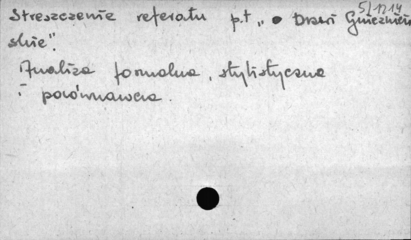 5/1214
Streszczenie referatu p.t „ Drzwi Gnieźnień
skie".
Analiza formalna, stylistyczna
i porównawcza.